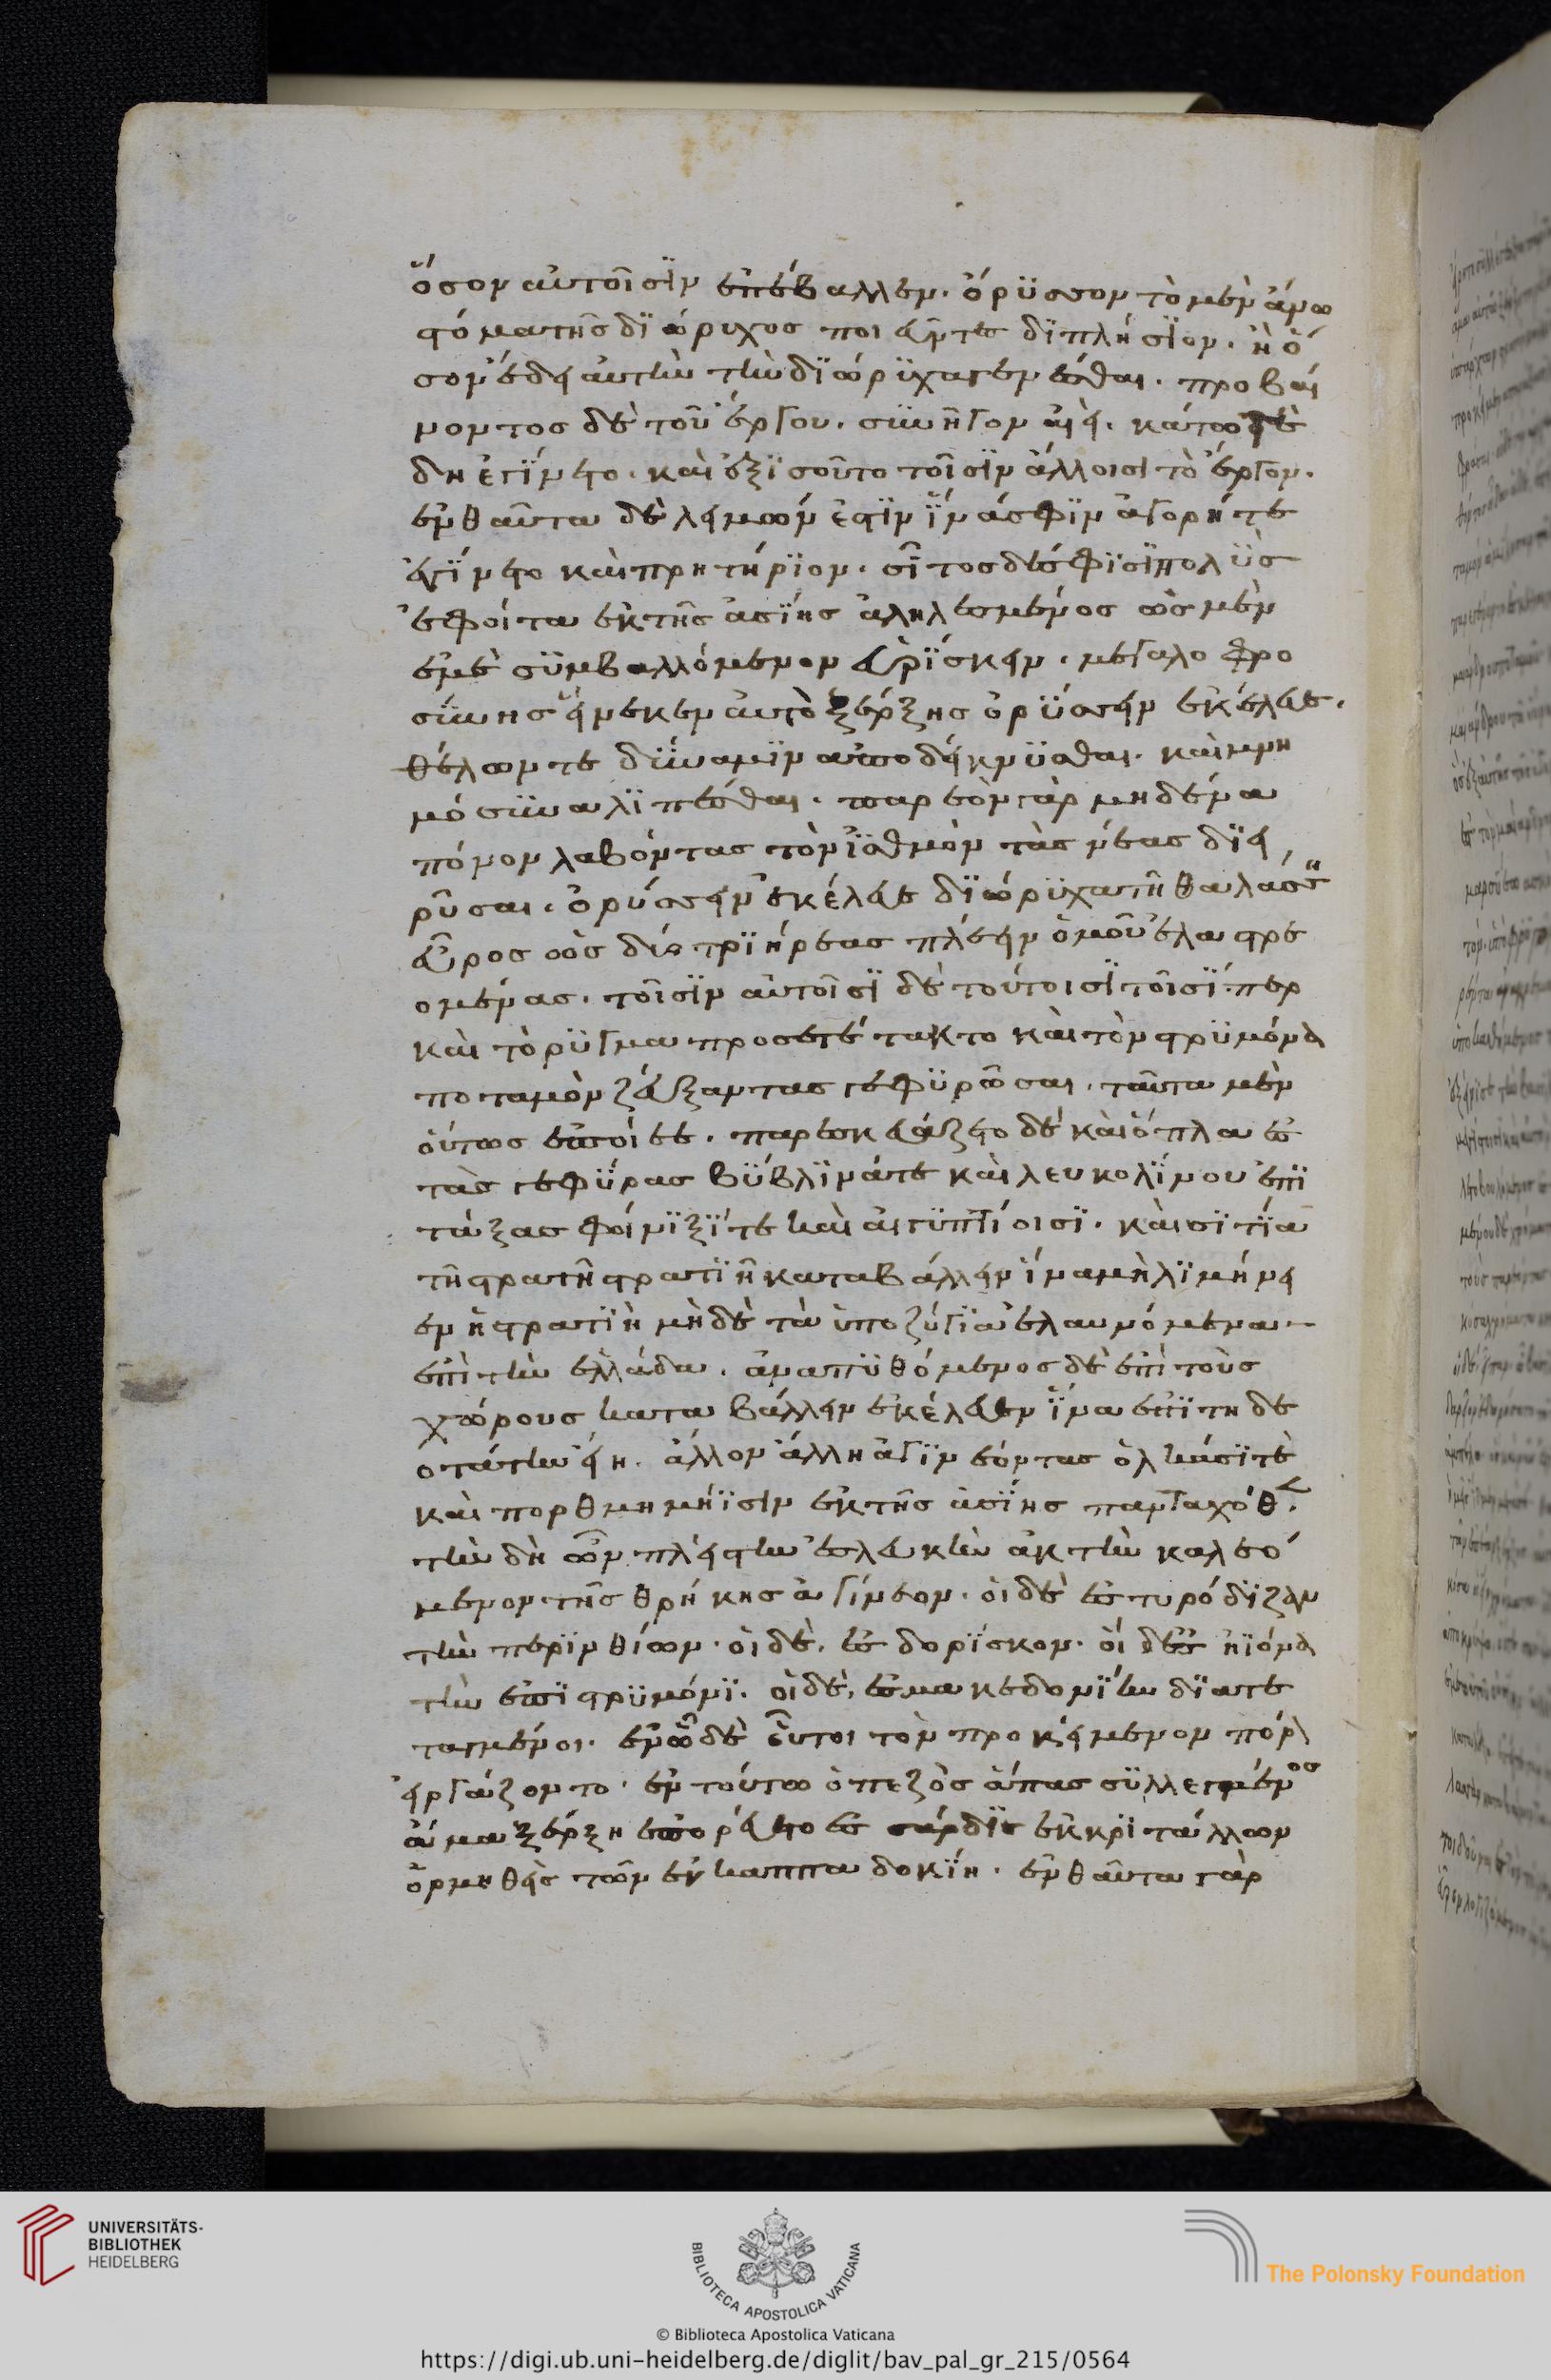 ὅσον αὐτοῖσϊν ἐπέβαλλεν. ὄρϋσσον τὸ μὲν ἄνω
στόμα τῆς δϊώρυχος ποιεῦντες δϊπλήσϊον. ἢ ὅ
σον ἔδει αὐτὴν τὴν δϊώρϋχα γενέσθαι. προβαί
νοντος δὲ τοῦ ἔργου. συνῆγον αἰεί. κάτω τε
δὴ ἐγίνετο. καὶ ἐξϊσοῦτο τοῖσϊν ἄλλοισι τὸ ἔργον.
ἐνθαῦτα δὲ λειμών ἐστϊν ἵνα σφϊν ἀγορή τε
ἐγίνετο καὶ πρητήρϊον. σῖτος δέ σφϊσϊ πολϋς
ἐφοίτα ἐκ τῆς ἀσίης ἀληλεσμένος ὡς μὲν
ἐμὲ σϋμβαλλόμενον εὑρϊσκειν. μεγαλοφρο
σύνης εἵνεκεν αὐτὸ ξέρξης ὀρϋσσειν ἐκέλευε.
θέλων τε δϋναμϊν ἀποδείκνϋσθαι. καὶ μνη
μόσϋνα λϊπέσθαι. παρεὸν γὰρ μηδένα
πόνον λαβόντας τὸν ἰσθμὸν τὰς νέας δϊει
ρῦσαι. ὀρύσσειν ἐκέλευε δϊώρϋχα τῆ θαλάσση
εὖρος ὡς δύο τρϊήρεας πλέειν ὁμοῦ ἐλαστρε
ομένας. τοῖσϊν αὐτοῖσϊ δὲ τούτοισϊ τοῖσϊπερ
καὶ τὸ ρϋγμα προσετέτακτο καὶ τὸν στρϋμόνα
ποταμὸν ζεύξαντας γεφϋρῶσαι. ταῦτα μὲν
οὕτως ἐποίεε. παρεσκευάζετο δὲ καὶ ὅπλα ἐς
τὰς γεφϋρας βϋβλϊνά τε καὶ λευκολϊνου ἐπϊ
τάξας φοίνϊξί τε καὶ αἰγϋπτίοισϊ. καὶ σϊτία
τῆ στρατιῆ καταβάλλειν ἵνα μὴ λϊμήνει
ἐν ἡ στρατϊὴ μὴδὲ τὰ ὑποζύγϊα ἐλαυνόμενα
ἐπὶ τὴν ἑλλάδα. ἀναπϋθόμενος δὲ ἐπὶ τοὺς
χώρους καταβάλλειν ἐκέλευεν ἵνα ἐπϊτηδε
οτάτην εἴη. ἄλλον ἄλλη ἀγϊνεόντας ὁλκάσϊ τε
καὶ πορθμημήϊσιν ἐκ τῆς ἀσίης πανταχόθεν.
τὴν δὴ ὦν πλείστην ἐς λευκὴν ἀκτὴν καλεο
μενον τῆς θρήκης ἀγίνεον. οἱ δὲ ἐς τυρόδϊζαν
τὴν περϊνθίων. οἱ δὲ. ἐς δορϊσκον. οἱ δὲ ἐς ἠϊόνα
τὴν ἐπϊ στρϋμόνϊ. οἱ δὲ, ἐς μακεδονϊην δϊατε
ταγμένοι. ἐν ᾧ δὲ οὗτοι τὸν προκείμενον πόνον
εἰργάζοντο. ἐν τούτω ὁ πεζὸς ἅπας σϋλλεγμένος
ἅμα ξέρξη ἐπορεύετο ἐς σάρδϊς ἐκ κρϊτάλλων
ὁρμηθεὶς τῶν ἐν καππαδοκίη. ἐνθαῦτα γὰρ
UNIVERSITÄTS-
BIBLIOTHEK
HEIDELBERG
BIBLIOTECA APOSTOLICA VATICANA
The Polonsky Foundation
© Biblioteca Apostolica Vaticana
https://digi.ub.uni-heidelberg.de/diglit/bav_pal_gr_215/0564